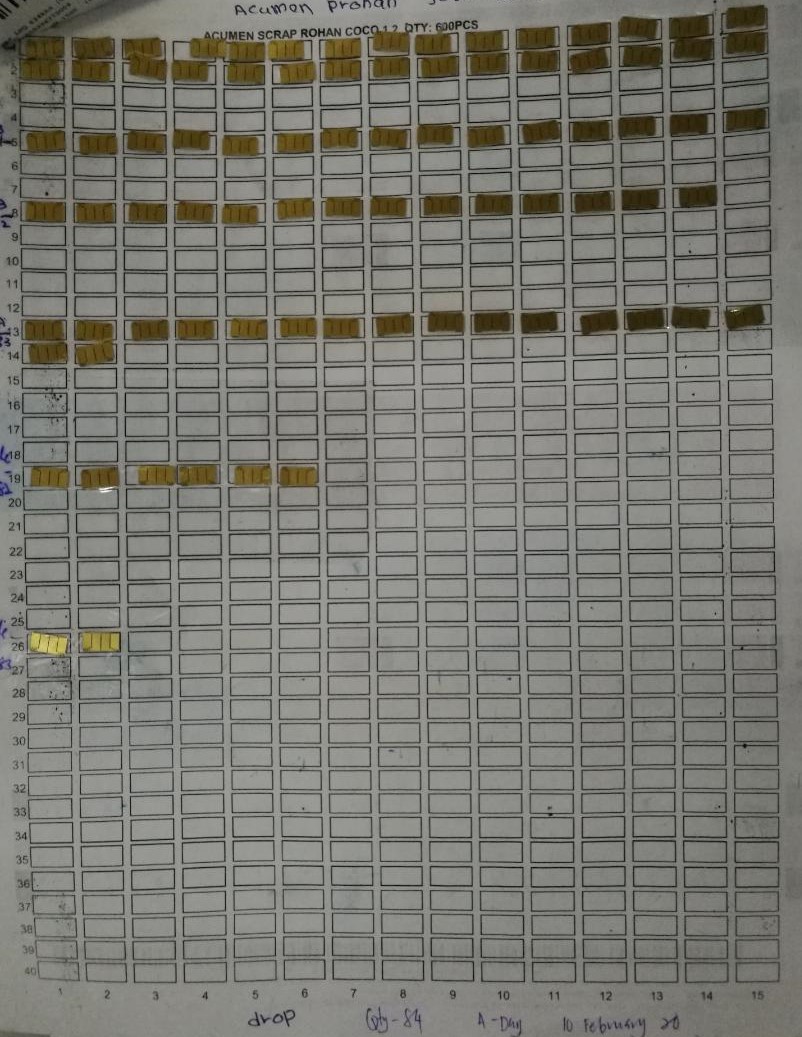 Acumen Prohan
ACUMEN SCRAP ROHAN COCO 1.2 QTY: 600PCS
3
4
5
6
7
8
9
10
11
12
13
14
15
16
17
18
19
20
21
22
23
24
25
26
27
28
29
30
31
32
33
34
35
36
37
38
39
40
1 2 3 4 5 6 7 8 9 10 11 12 13 14 15
drop Qty-84 A-Day 10 February 20